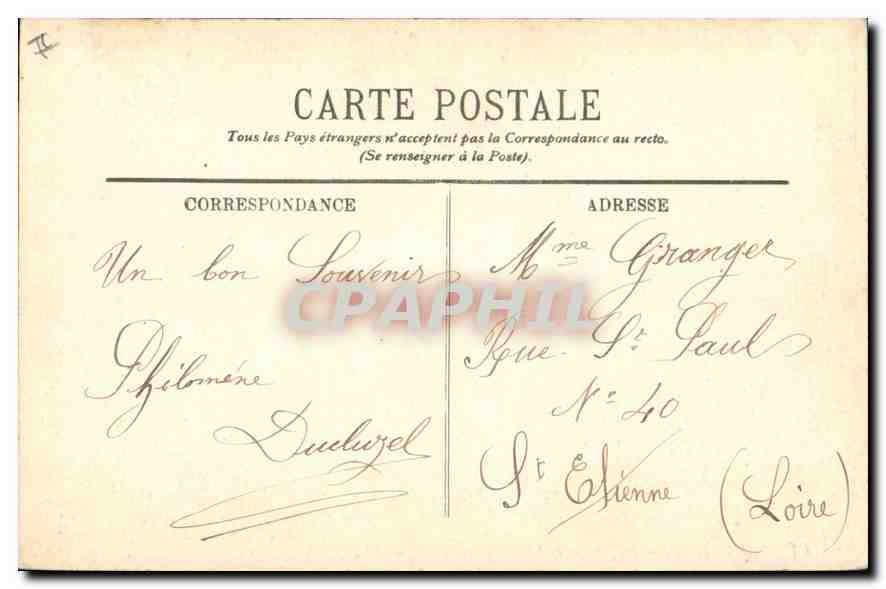 CARTE POSTALE
Tous les Pays étrangers n'acceptent pas la Correspondance au recto.
(Se renseigner à la Poste).
CORRESPONDANCE
Un bon Souvenir
Philoméne
Ducluzel
ADRESSE
Mme Granger
Rue St Paul
No 40
St Etienne
(Loire)
CPAPHIL